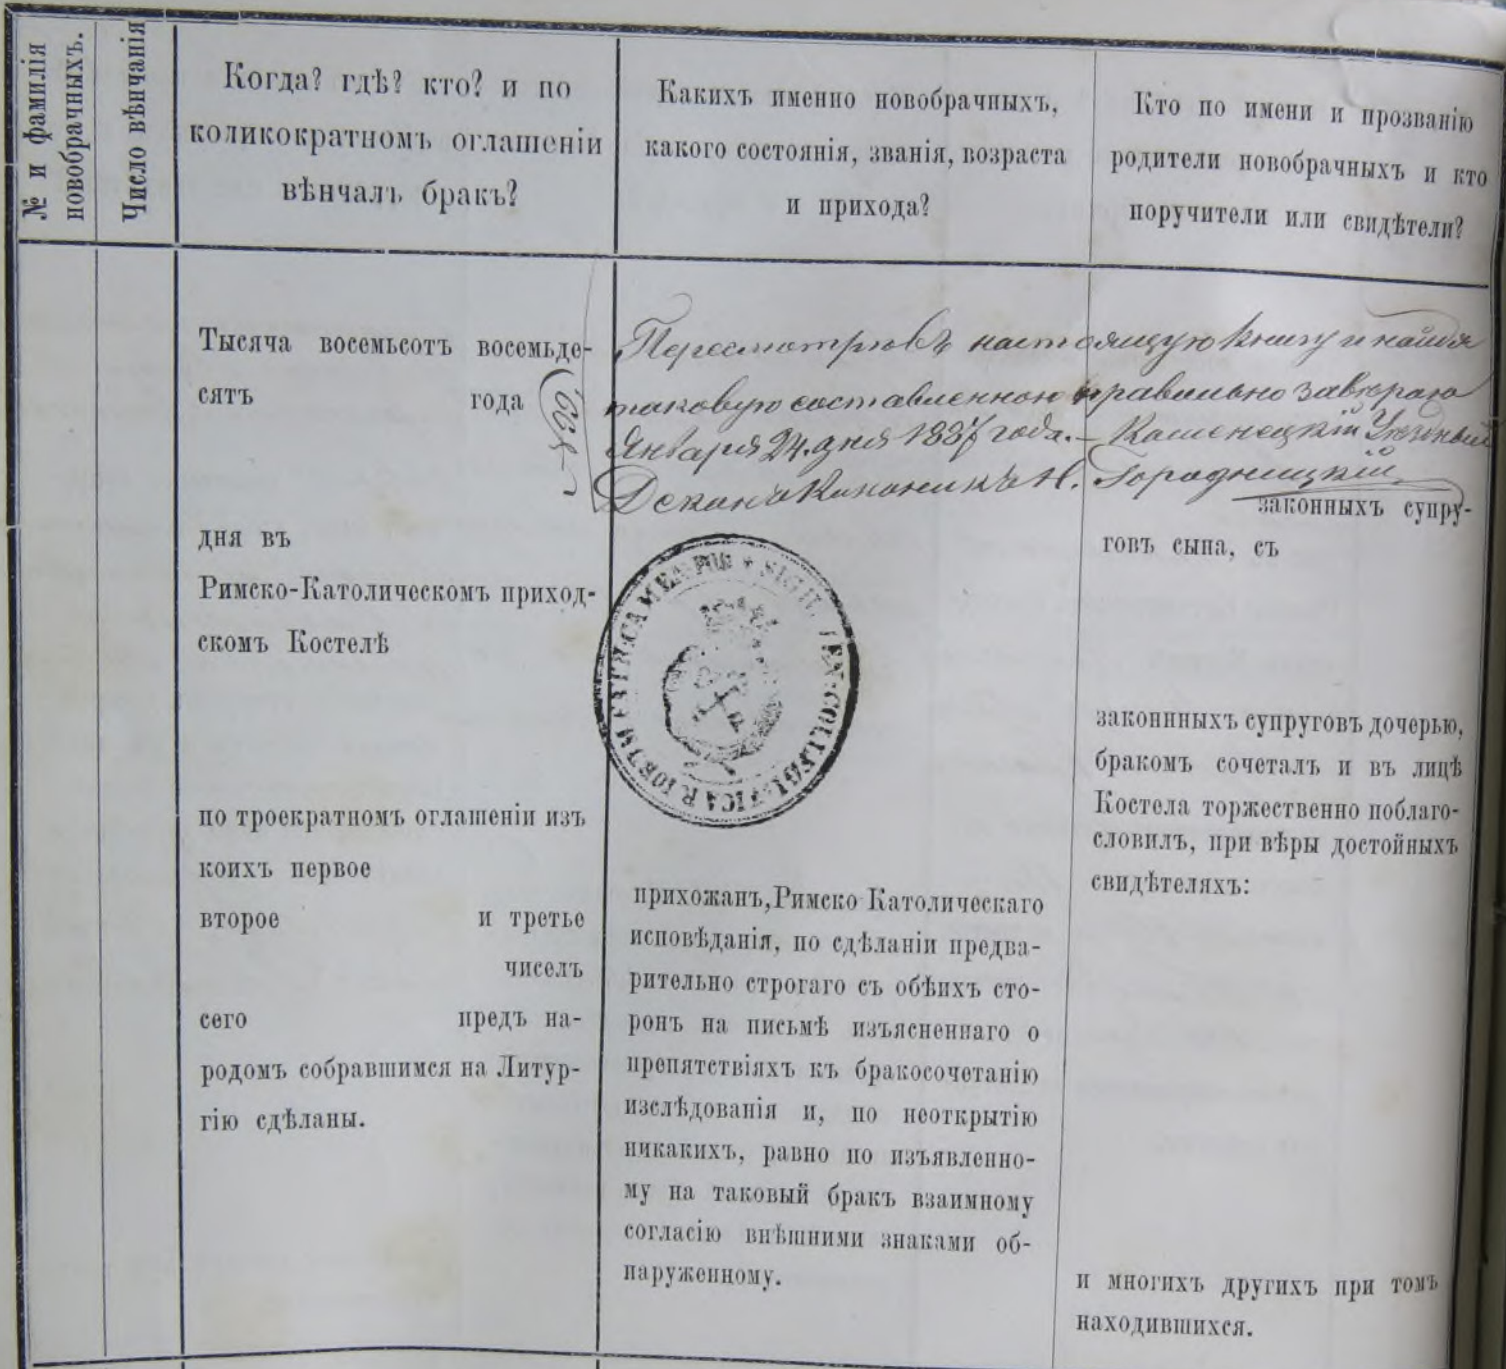 № и фамилія
новобрачныхъ.
Число вѣнчанія
Когда? гдѣ? кто? и по
коликократномъ оглашеніи
вѣнчалъ бракъ?
Какихъ именно новобрачныхъ,
какого состоянія, званія, возраста
и прихода?
Кто по имени и прозванію
родители новобрачныхъ и кто
поручители или свидѣтели?
Тысяча восемьсотъ восемьде-
сятъ года
дня въ
Римско-Католическомъ приход-
скомъ Костелѣ
по троекратномъ оглашеніи изъ
коихъ первое
второе и третье
чиселъ
сего предъ на-
родомъ собравшимся на Литур-
гію сдѣланы.
Пересмотрѣвъ настоящую книгу и найдя
таковую составленною правильно завѣряю
Января 24. дня 1887 года. – Каменецкій Уѣздный
Деканъ Каноникъ Н. Городницкій
SIGIL
CAMEN
прихожанъ, Римско Католическаго
исповѣданія, по сдѣланіи предва-
рительно строгаго съ обѣихъ сто-
ронъ на письмѣ изъясненнаго о
препятствіяхъ къ бракосочетанію
изслѣдованія и, по неоткрытію
никакихъ, равно по изъявленно-
му на таковый бракъ взаимному
согласію внѣшними знаками об-
наруженному.
законныхъ супру-
говъ сына, съ
законнныхъ супруговъ дочерью,
бракомъ сочеталъ и въ лицѣ
Костела торжественно поблаго-
словилъ, при вѣры достойныхъ
свидѣтеляхъ:
и многихъ другихъ при томъ
находившихся.